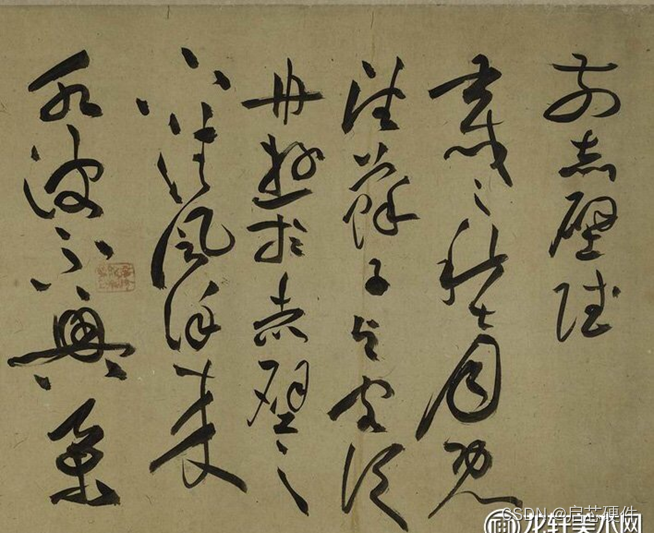 前赤壁賦
壬戌之秋七月既
望蘇子与客泛
舟遊於赤壁之
下清風徐來
水波不興舉
CSDN @启芯硬件
龙轩美术网